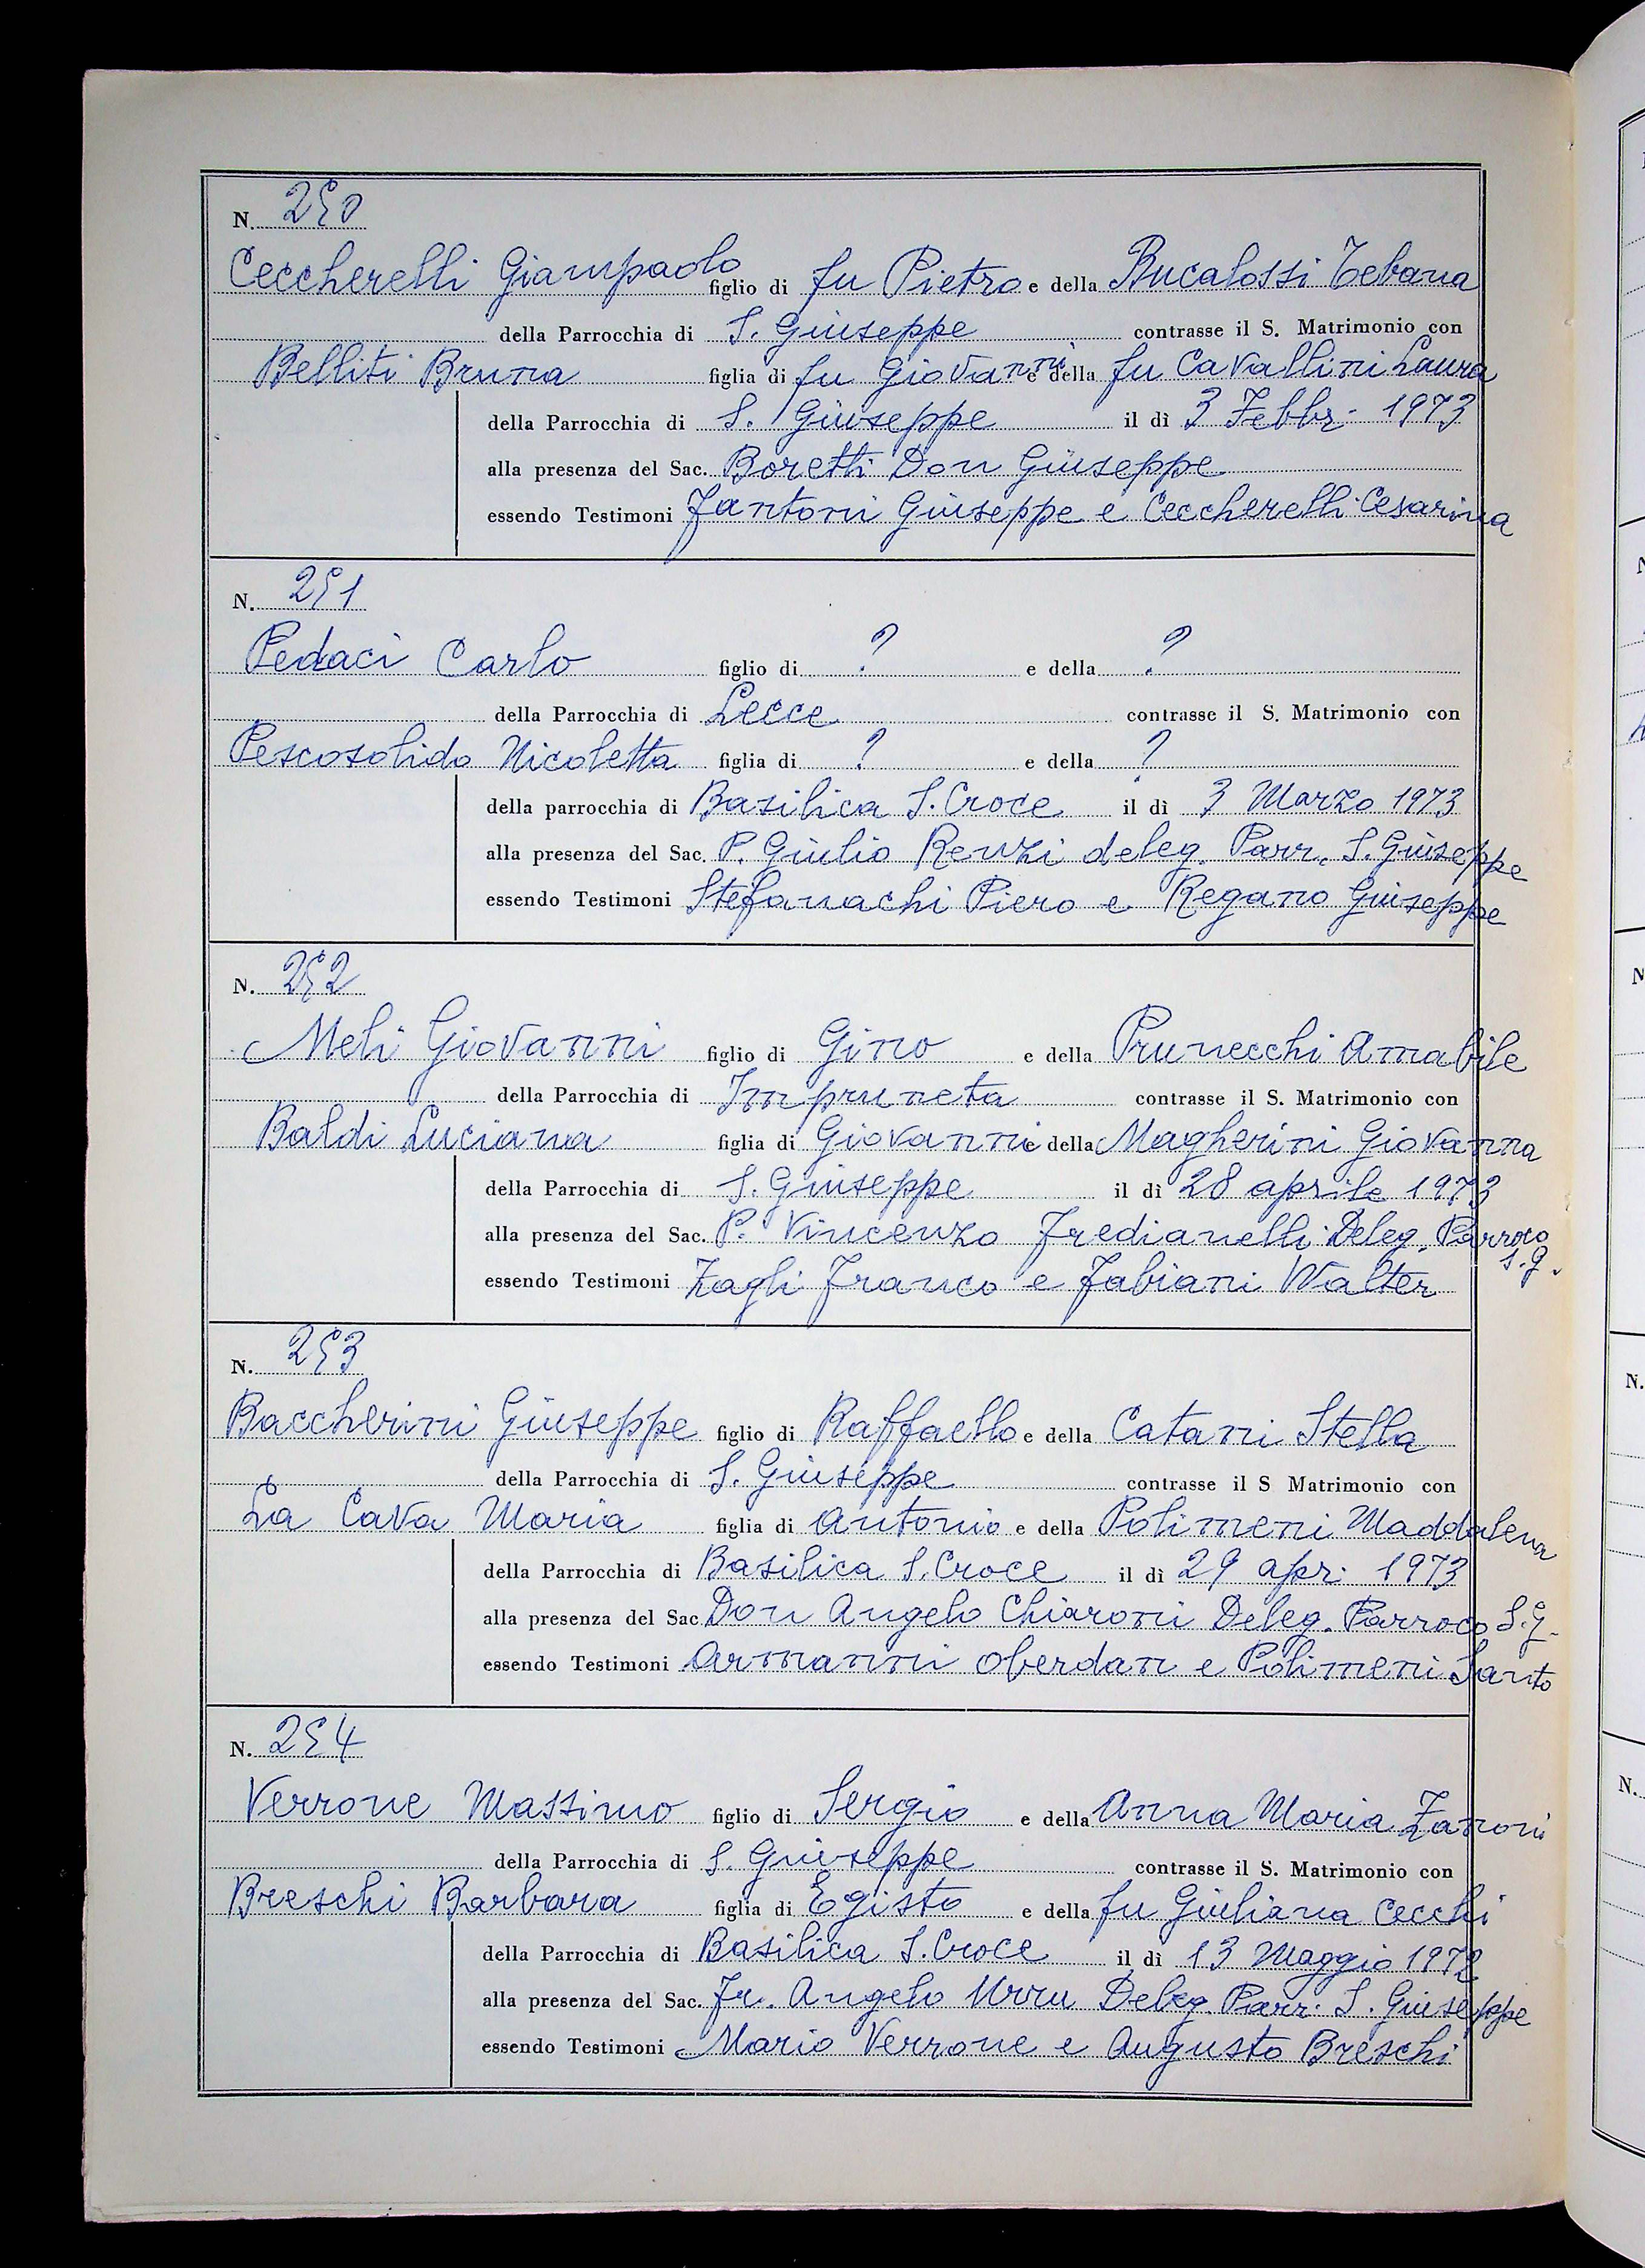 N. 250
Ceccherelli Giampaolo figlio di fu Pietro e della Bucalossi Tebana
della Parrocchia di S. Giuseppe contrasse il S. Matrimonio con
Belliti Bruna figlia di fu Giovanni e della fu Cavallini Laura
della Parrocchia di S. Giuseppe il dì 3 Febbr. 1973
alla presenza del Sac. Boretti Don Giuseppe
essendo Testimoni Fantoni Giuseppe e Ceccherelli Cesarina
N. 251
Pedaci Carlo figlio di ? e della ?
della Parrocchia di Lecce contrasse il S. Matrimonio con
Pescosolido Nicoletta figlia di ? e della ?
della parrocchia di Basilica S. Croce il dì 3 Marzo 1973
alla presenza del Sac. P. Giulio Renzi deleg. Parr. S. Giuseppe
essendo Testimoni Stefanachi Piero e Regano Giuseppe
N. 252
Meli Giovanni figlio di Gino e della Prunecchi Amabile
della Parrocchia di Impruneta contrasse il S. Matrimonio con
Baldi Luciana figlia di Giovanni e della Magherini Giovanna
della Parrocchia di S. Giuseppe il dì 28 aprile 1973
alla presenza del Sac. P. Vincenzo Fredianelli Deleg. Parroco S.G.
essendo Testimoni Zagli Franco e Fabiani Walter
N. 253
Baccherini Giuseppe figlio di Raffaello e della Catani Stella
della Parrocchia di S. Giuseppe contrasse il S Matrimonio con
La Cava Maria figlia di Antonio e della Polimeni Maddalena
della Parrocchia di Basilica S. Croce il dì 29 apr. 1973
alla presenza del Sac Don Angelo Chiaroni Deleg. Parroco S.G.
essendo Testimoni Armanni Oberdan e Polimeni Santo
N. 254
Verrone Massimo figlio di Sergio e della Anna Maria Zanoni
della Parrocchia di S. Giuseppe contrasse il S. Matrimonio con
Breschi Barbara figlia di Egisto e della fu Giuliana Cecchi
della Parrocchia di Basilica S. Croce il dì 13 Maggio 1972
alla presenza del Sac. Fr. Angelo Urru Deleg. Parr. S. Giuseppe
essendo Testimoni Mario Verrone e Augusto Breschi